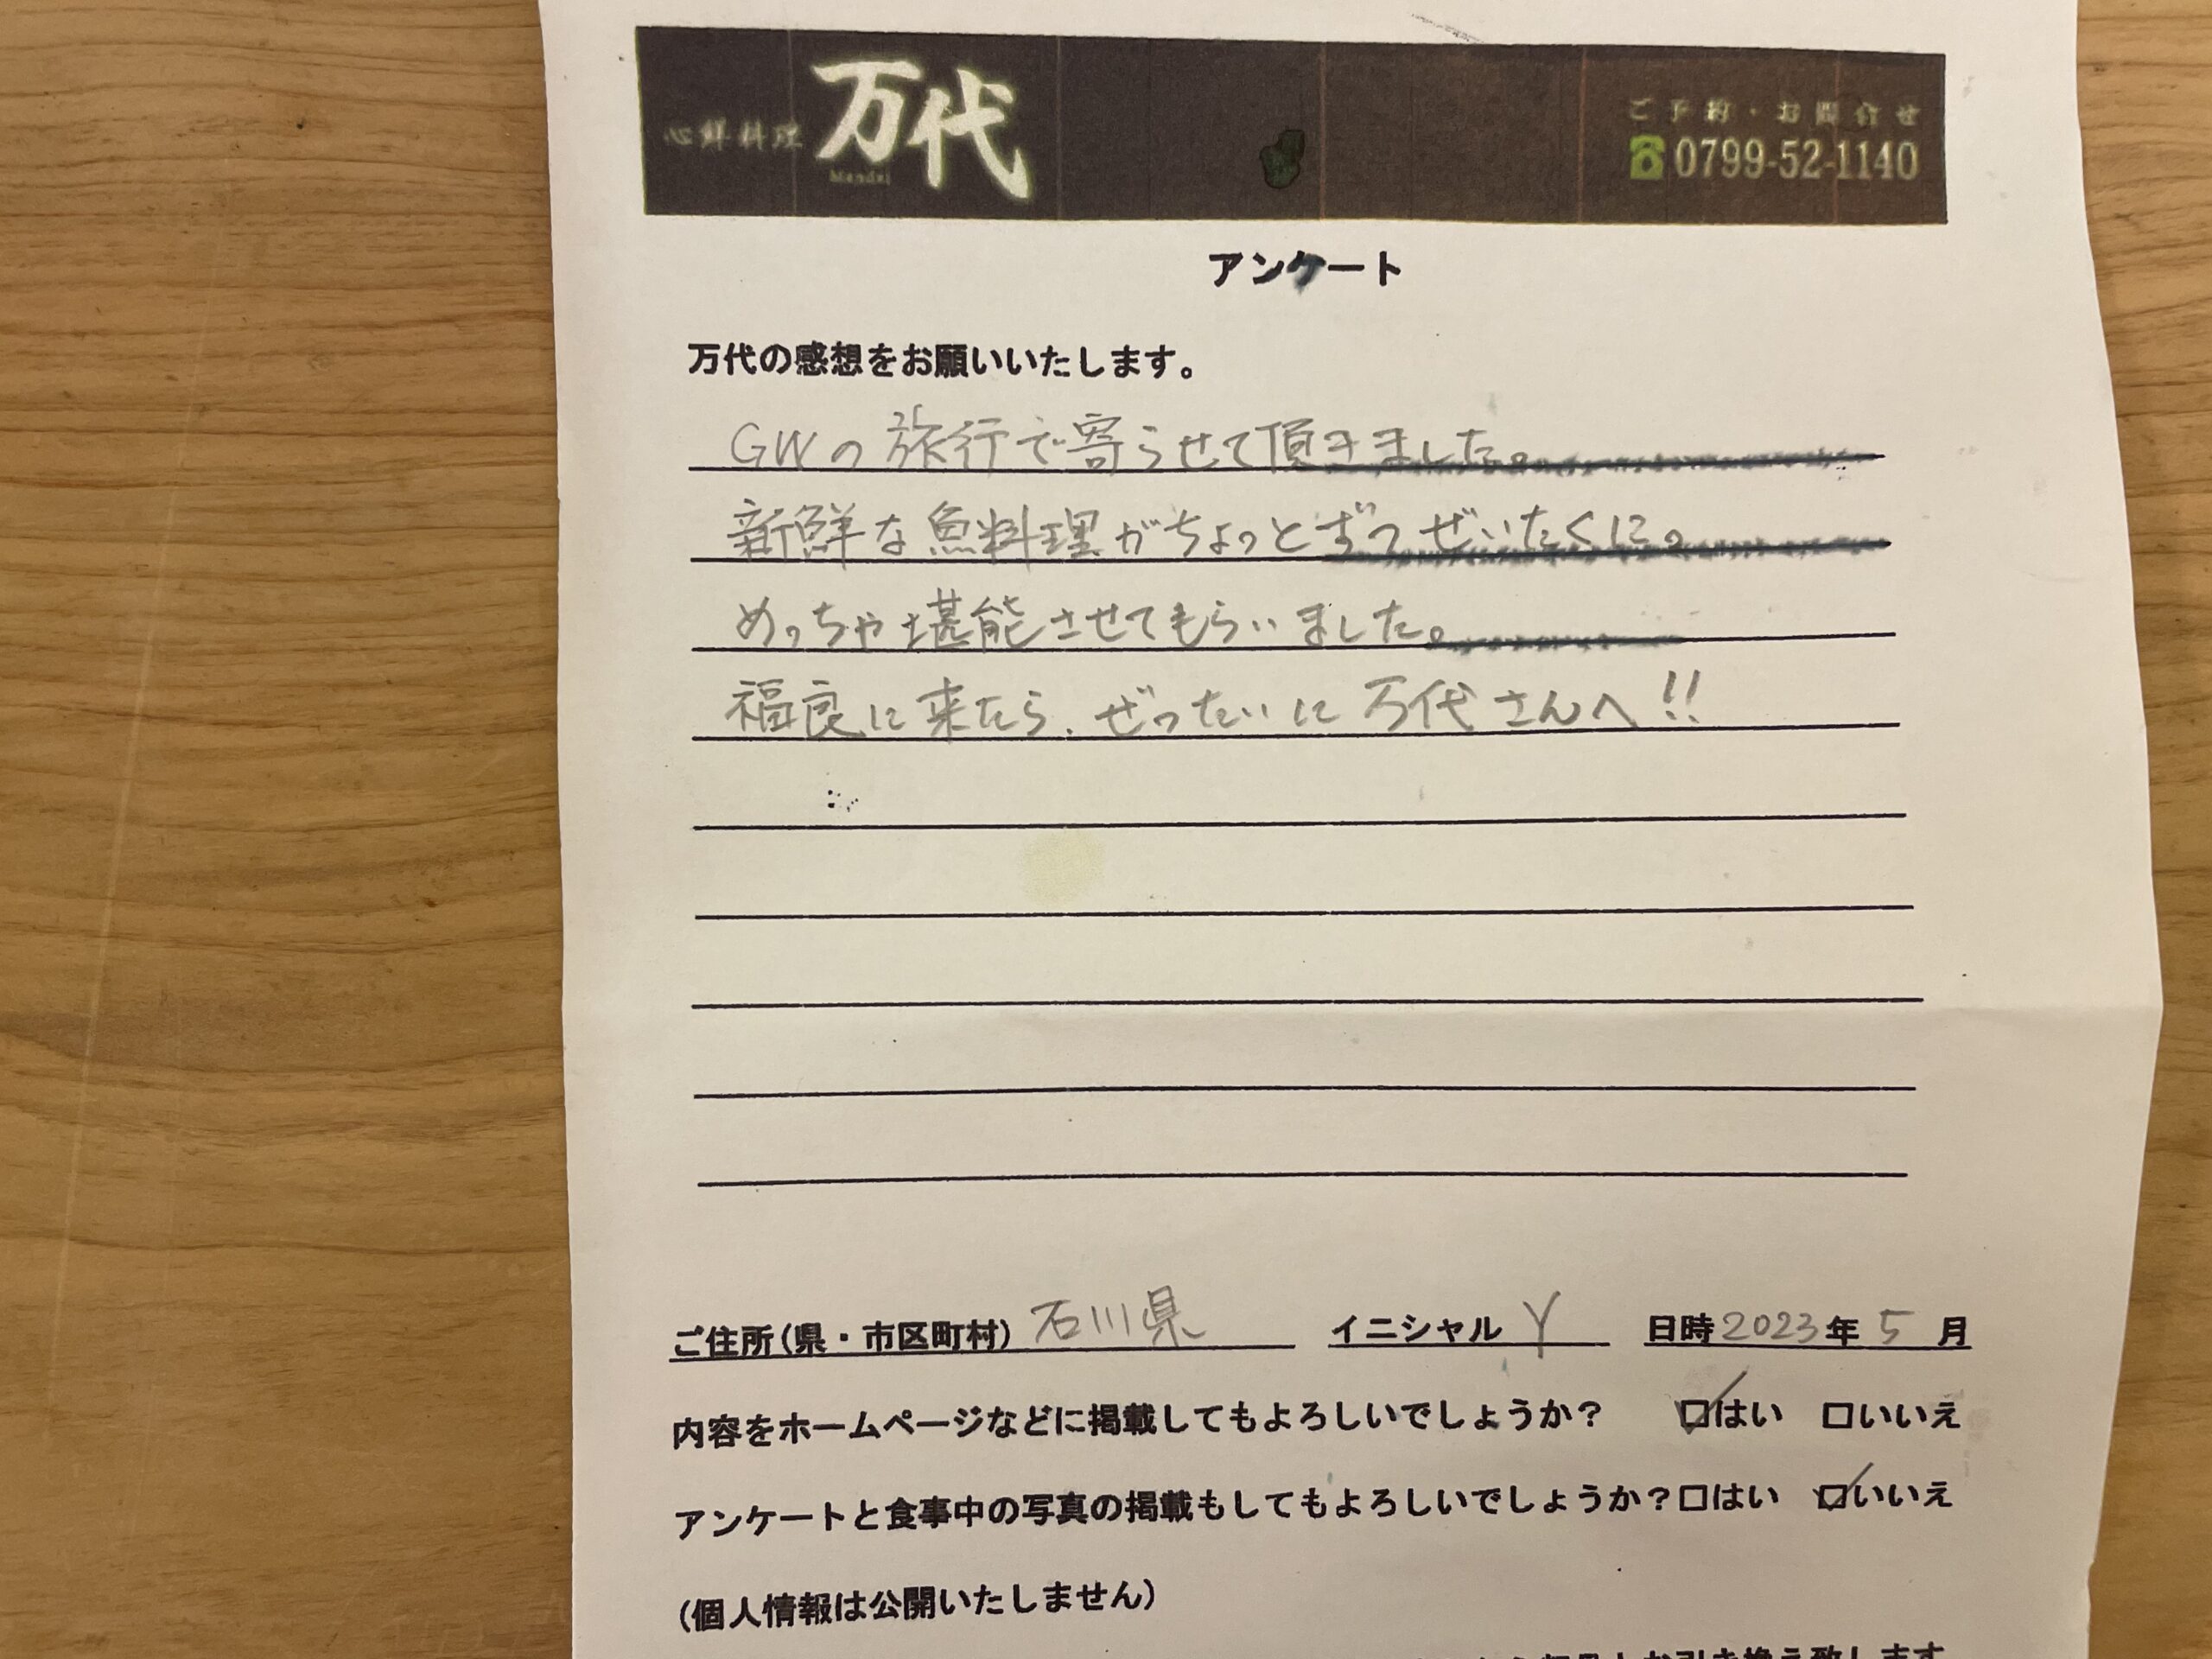 心鮮料理 万代
Mandai
ご予約・お問合せ
0799-52-1140
アンケート
万代の感想をお願いいたします。
GWの旅行で寄らせて頂きました。
新鮮な魚料理がちょっとずつぜいたくに。
めっちゃ堪能させてもらいました。
福良に来たら、ぜったいに万代さんへ!!
ご住所(県・市区町村) 石川県 イニシャル Y 日時2023年 5 月
内容をホームページなどに掲載してもよろしいでしょうか? ☑はい □いいえ
アンケートと食事中の写真の掲載もしてもよろしいでしょうか?□はい ☑いいえ
(個人情報は公開いたしません)
お引き換え致します